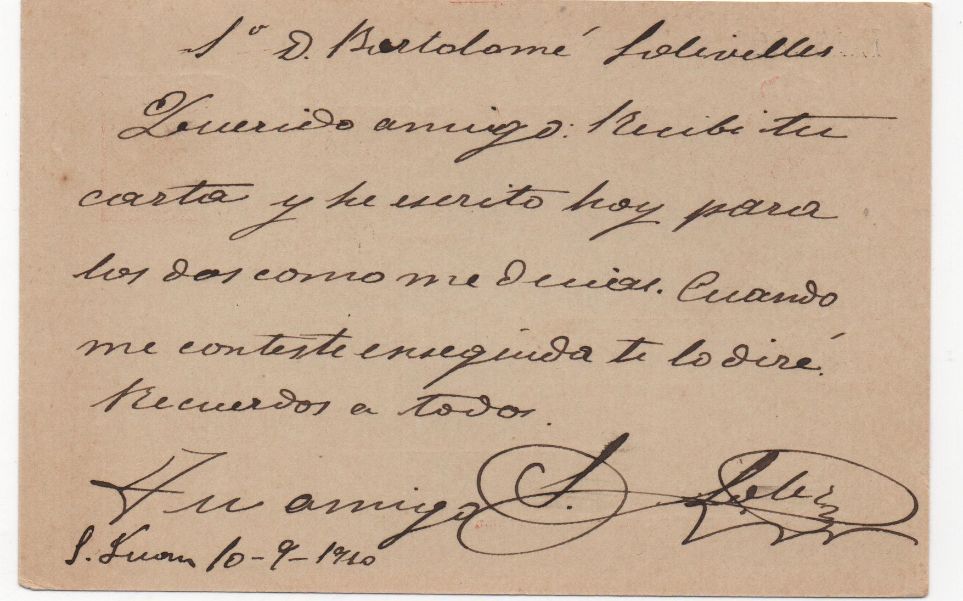 Sº D. Bartolomé Solivelles
Querido amigo: Recibi tu
carta y he escrito hoy para
los dos como me decias. Cuando
me conteste enseguida te lo diré.
Recuerdos a todos.
Tu amigo S.
S. Juan 10-9-1910